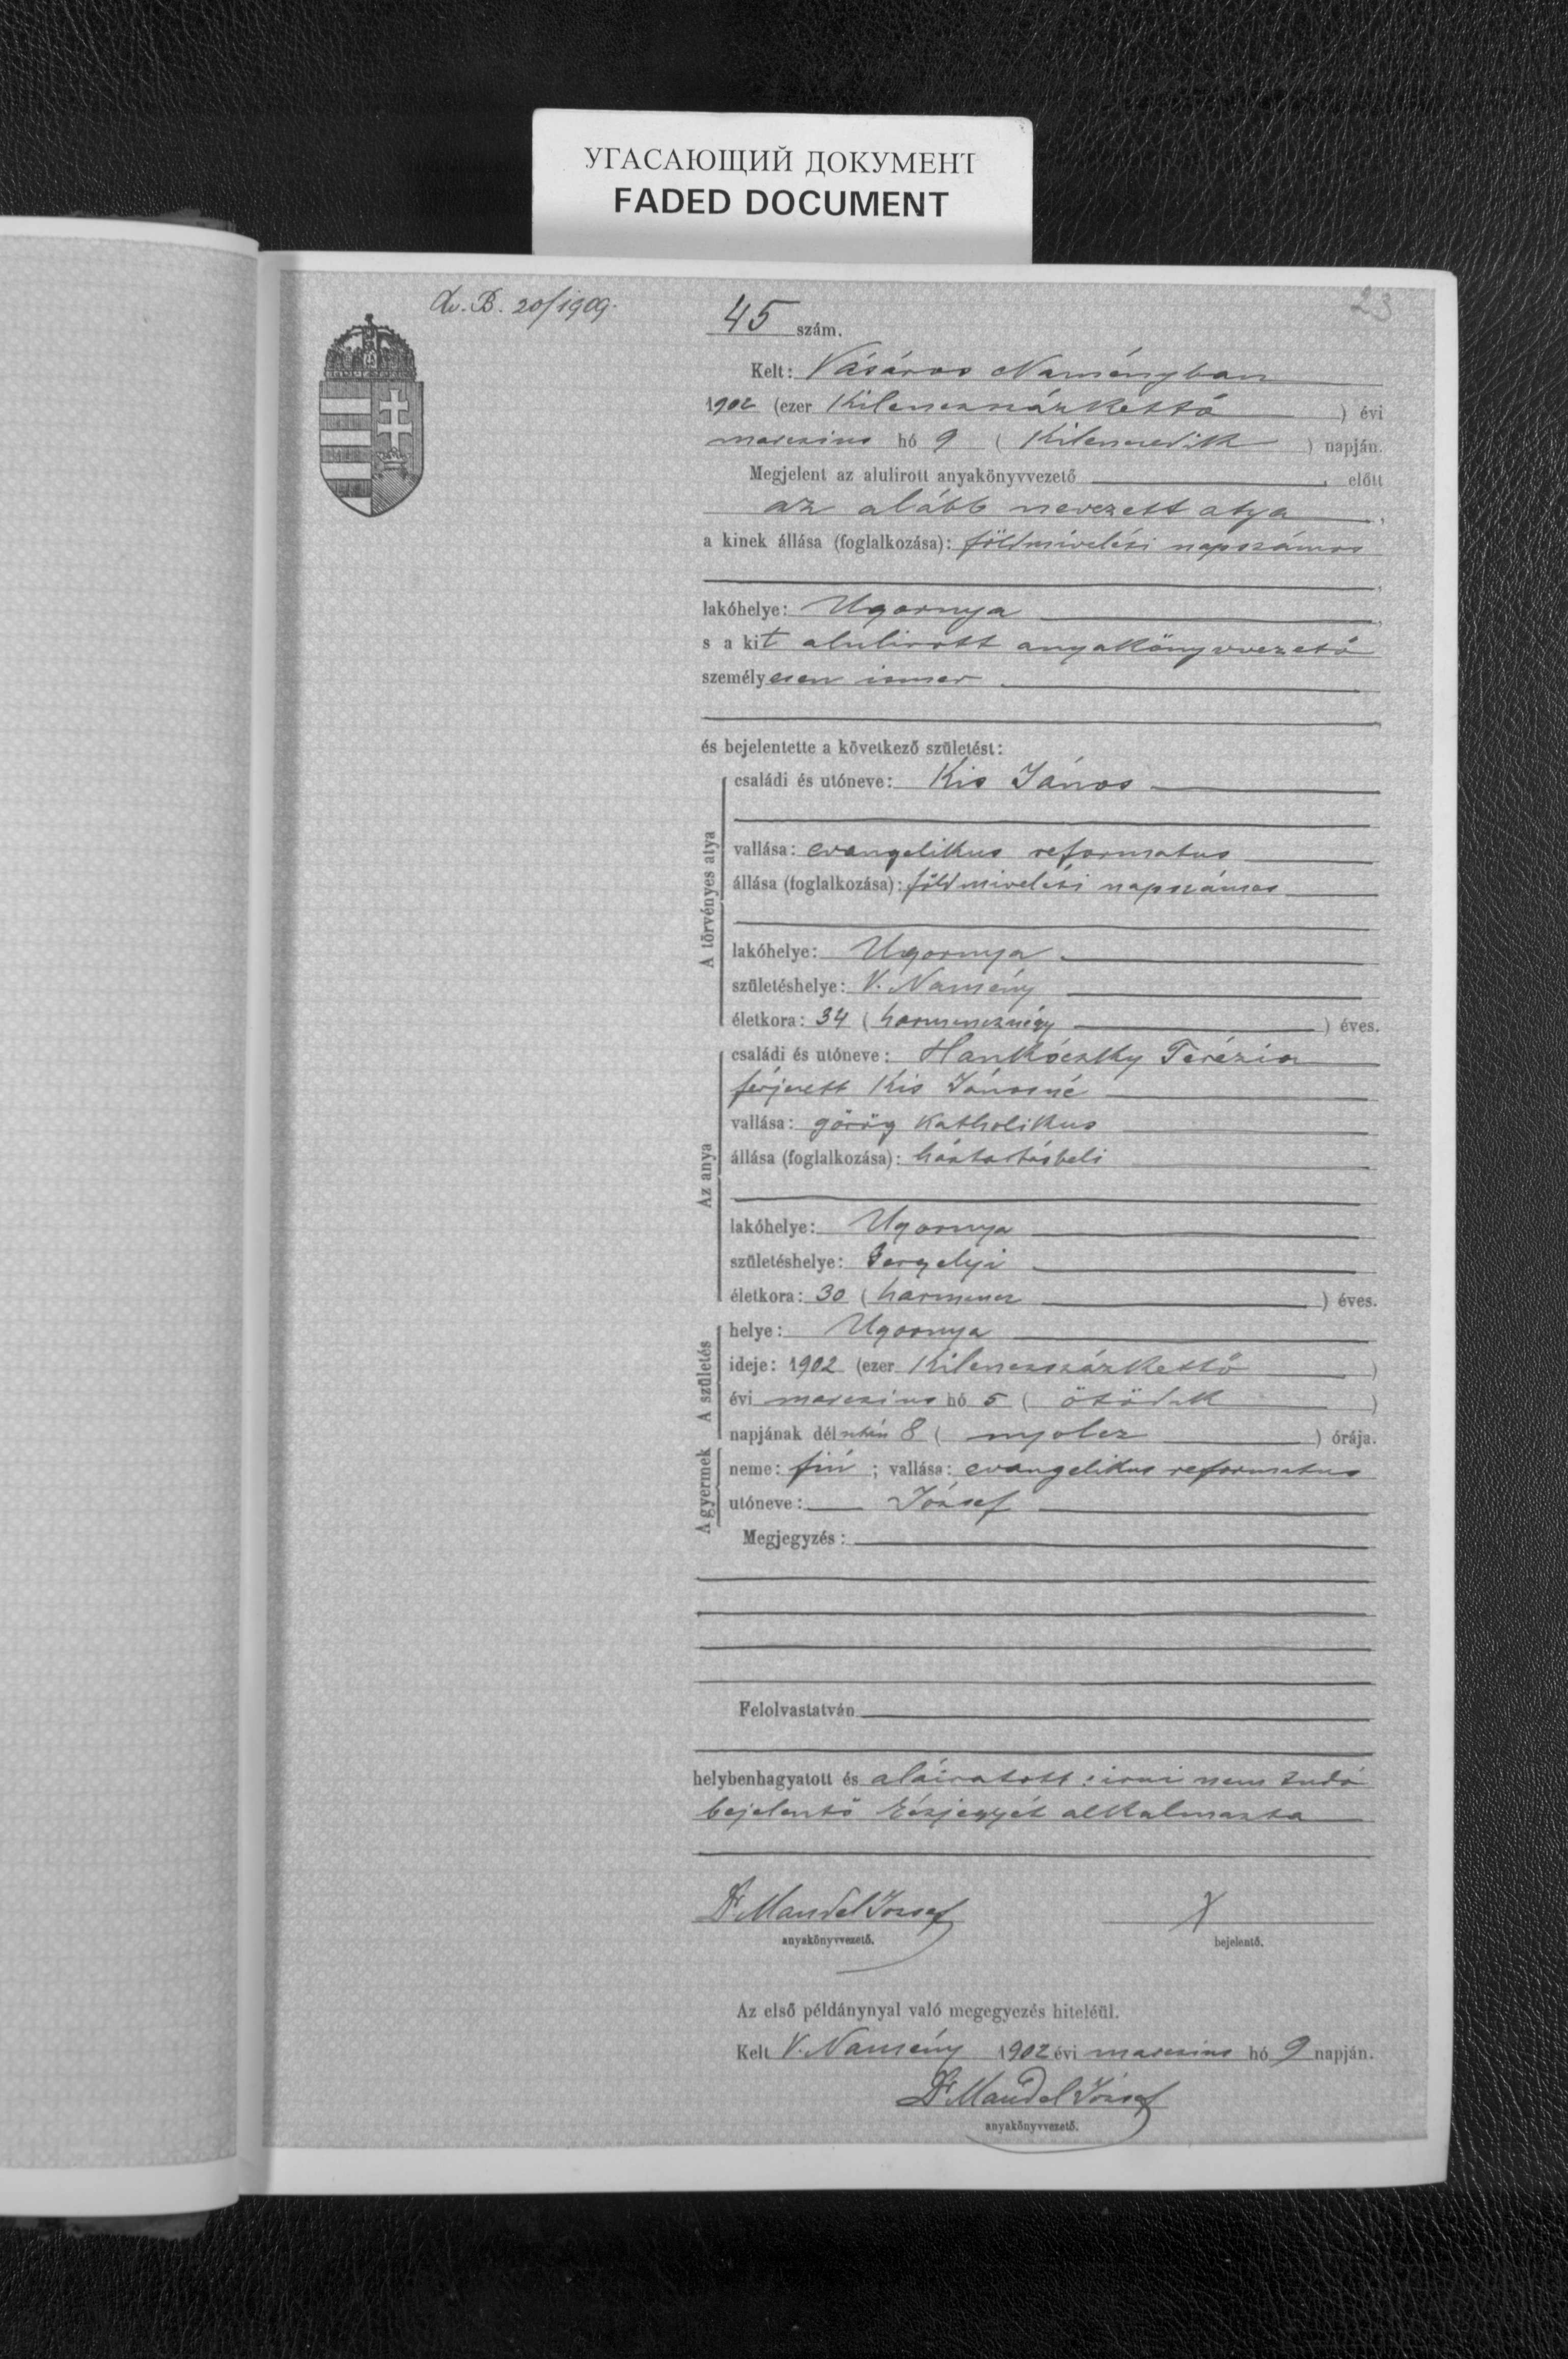 УГАСАЮЩИЙ ДОКУМЕНТ
FADED DOCUMENT
B. 20/1909.
23
45 szám.
Kelt: Vásáros Naményban
1902 (ezer kilenczszázkettő) évi
marczius hó 9 (kilenczedik) napján.
Megjelent az alulirott anyakönyvvezető, előtt
az alább nevezett atya,
a kinek állása (foglalkozása): földmivelési napszámos
lakóhelye: Ugornya,
s a kit alulirott anyakönyvvezető
személyesen ismer
és bejelentette a következő születést:
A törvényes atya
családi és utóneve: Kis János
vallása: evangelikus reformatus
állása (foglalkozása): földmivelési napszámos
lakóhelye: Ugornya
születéshelye: V. Namény
életkora: 34 (harmincznégy) éves.
Az anya
családi és utóneve: Hankóczky Terézia
férjezett Kis Jánosné
vallása: görög katholikus
állása (foglalkozása): háztartásbeli
lakóhelye: Ugornya
születéshelye: Gergelyi
életkora: 30 (harmincz) éves.
A születés
helye: Ugornya
ideje: 1902 (ezer kilenczszázkettő)
évi marczius hó 5 (ötödik)
napjának délután 8 (nyolcz) órája.
A gyermek
neme: fiú; vallása: evangelikus reformatus
utóneve: József
Megjegyzés:
Felolvastatván
helybenhagyatott és aláiratott: irni nem tudó
bejelentő kézjegyét alkalmazta
Dr Mandel József X
anyakönyvvezető. bejelentő.
Az első példánynyal való megegyezés hiteléül.
Kelt V. Namény 1902 évi marczius hó 9 napján.
Dr Mandel József
anyakönyvvezető.